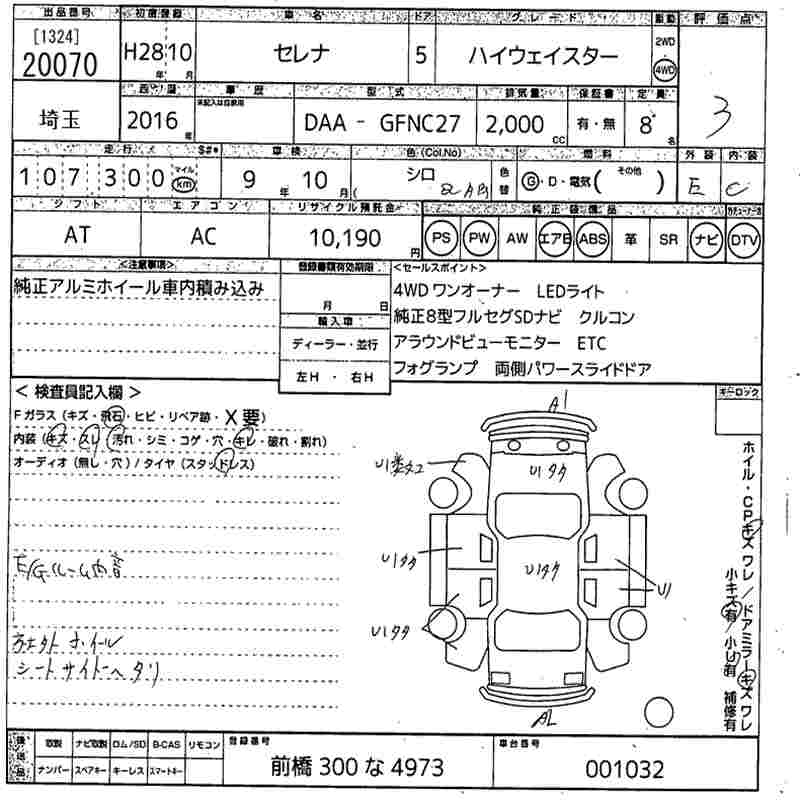 出品番号 初度登録 車名 ドア グレード 駆動 評価点
[1324] 20070 H28 年 10 月 セレナ 5 ハイウェイスター 2WD 4WD 3
西暦 車歴 型式 排気量 保証書 定員
埼玉 2016 年 未記入は自家用 DAA - GFNC27 2,000 cc 有・無 8 名
走行 S#* 車検 色(Col.No) 燃料 外装 内装
107,300 マイル km 9 年 10 月 シロ ( QAB) 色替 G・D・電気( その他 ) E C
シフト エアコン リサイクル預託金 純正装備品
AT AC 10,190 円 PS PW AW エアB ABS 革 SR ナビ DTV
<注意事項> 登録書類有効期限 <セールスポイント>
純正アルミホイール車内積み込み 月 日 4WD ワンオーナー LEDライト
輸入車 純正8型フルセグSDナビ クルコン
ディーラー・並行 アラウンドビューモニター ETC
左H・右H フォグランプ 両側パワースライドドア
<検査員記入欄> キーロック
Fガラス(キズ・飛石・ヒビ・リペア跡・X要)
内装(キズ・スレ・汚れ・シミ・コゲ・穴・キレ・破れ・割れ)
オーディオ(無し・穴)/タイヤ(スタッドレス)
A1
U1タタ
U1タタ
U1タタ
U1
U1タタ
E/Gルーム内音
ホイール
シートサイドヘタリ
AL
ホイル・CPキズワレ/ドアミラーキズワレ
小キズ有/小U有 補修有
後送品 取説 ナビ取説 ロム/SD B-CAS リモコン 登録番号 車台番号
ナンバー スペアキー キーレス スマートキー 前橋 300 な 4973 001032